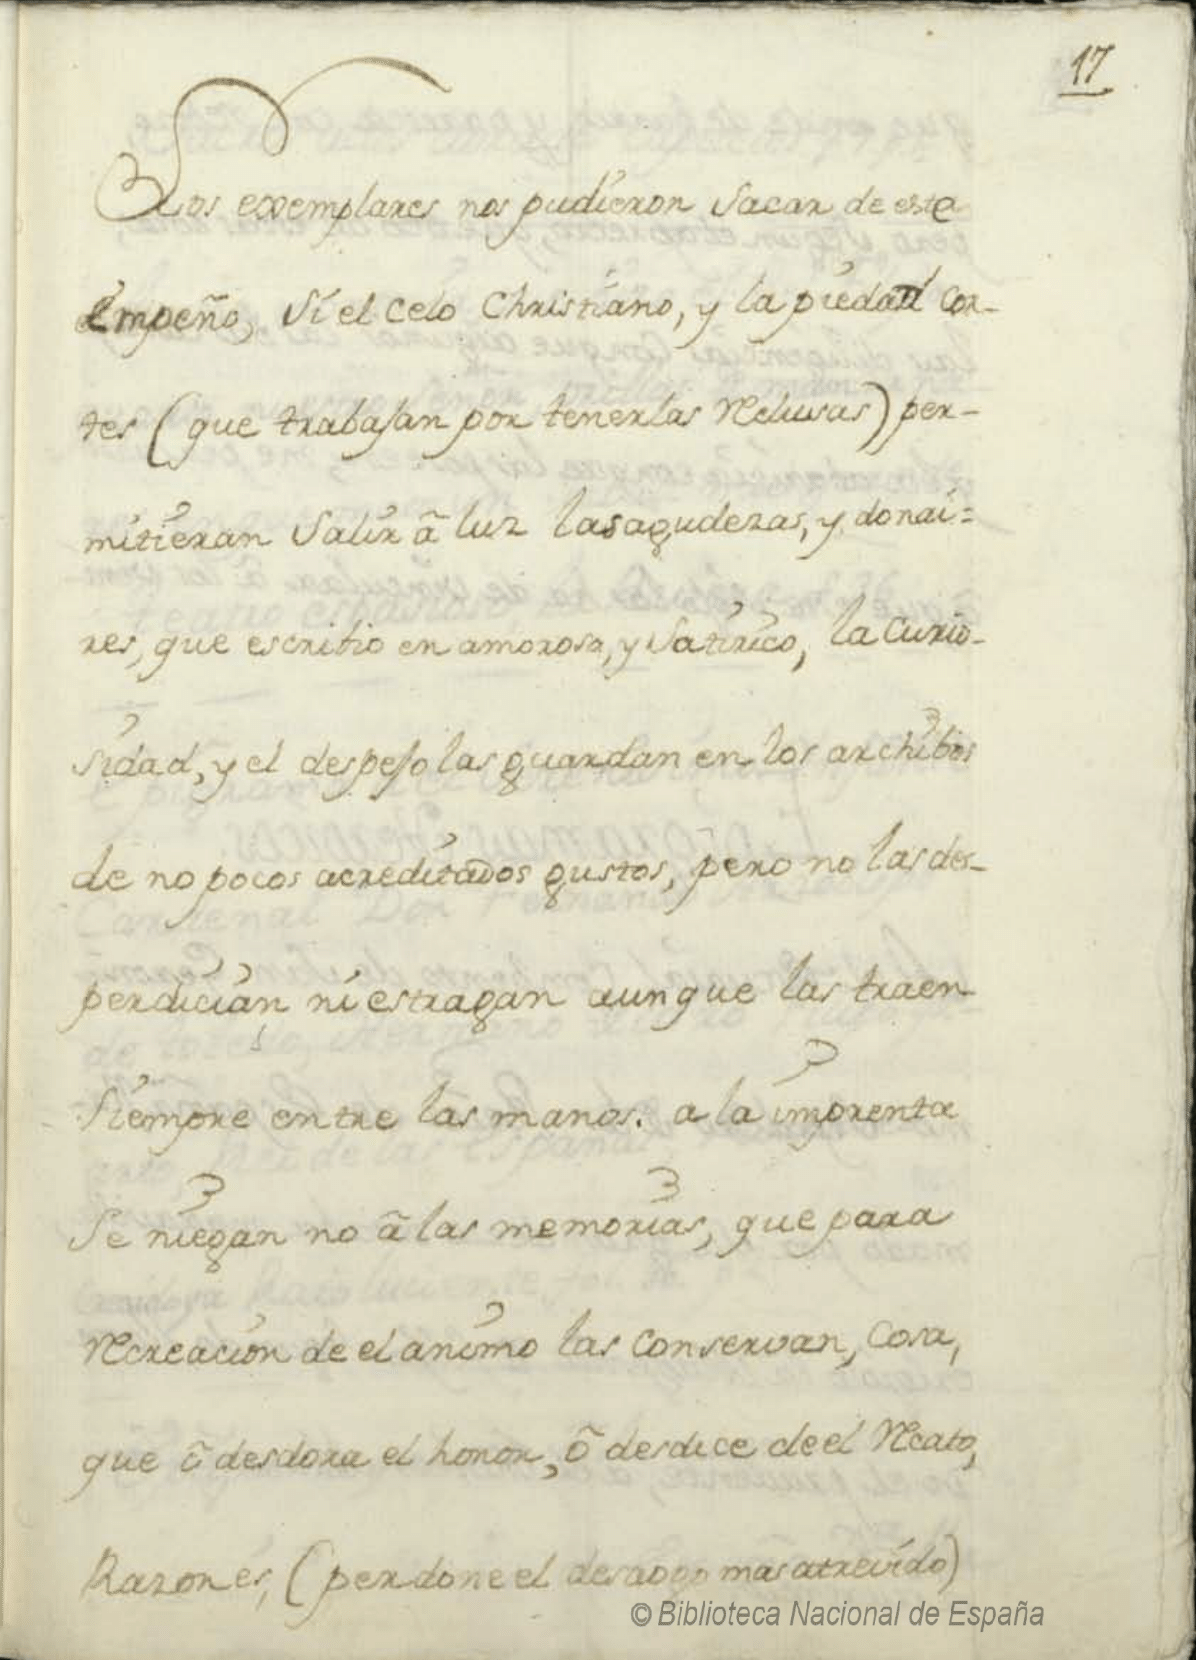 17
Los exemplares nos pudieron Sacar de este
empeño, Si el celo Christiano, y la piedad Cor-
tes (que trabajan por tenerlas reclusas) per-
mitieran Salir â luz las agudezas, y donai=
res, que escribio en amoroso, y Satirico, la Curio-
sidad, y el despejo las guardan en los archibos
de no pocos acreditados gustos, pero no las des-
perdician, ni estragan aunque las traen
Siempre entre las manos. a la imprenta
Se niegan no â las memorias, que para
recreacion de el animo las conservan, Cosa,
que ô desdora el honor, ô desdice de el recato,
Razones, (perdone el desaogo mas atrevido)
© Biblioteca Nacional de España